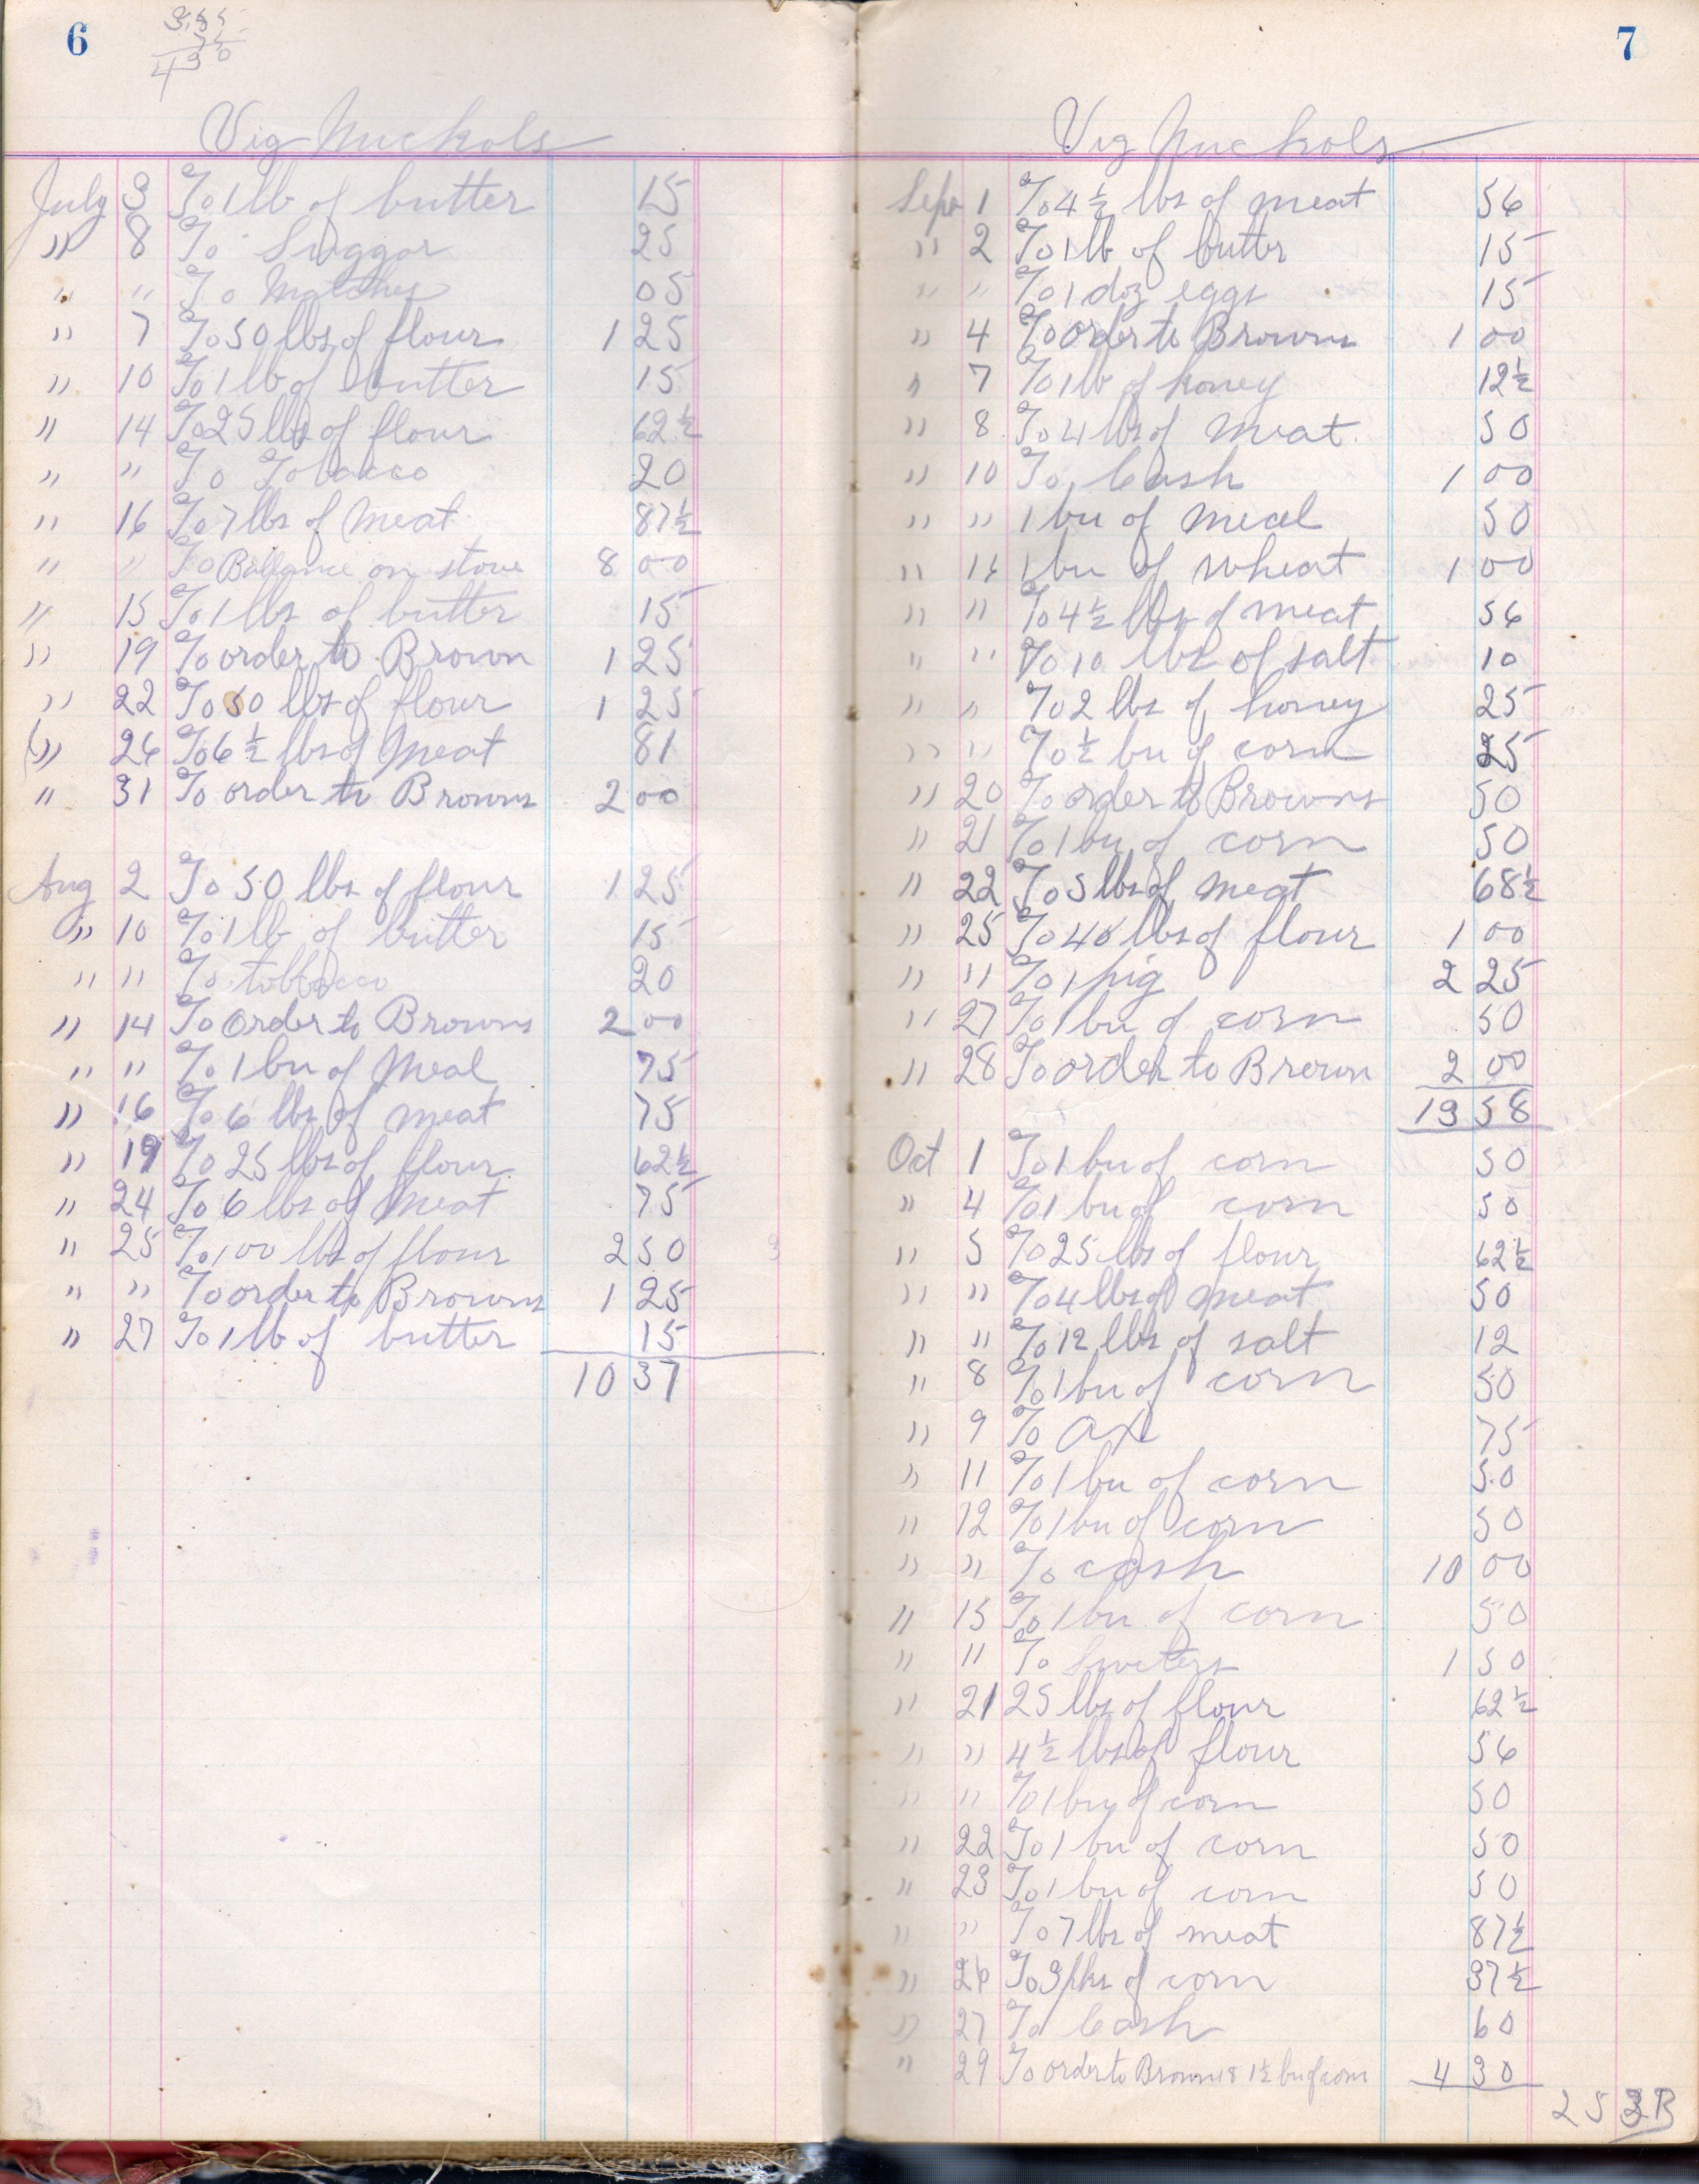 6
3.55
75
430
Vig Nuckols
July 3 To 1 lb of butter 15
" 8 To Suggar 25
" " To Matches 05
" 7 To 50 lbs of flour 1 25
" 10 To 1 lb of butter 15
" 14 To 25 lbs of flour 62 1/2
" " To Tobacco 20
" 16 To 7 lbs of Meat 87 1/2
" " To Ballance on stove 8 00
" 15 To 1 lbs of butter 15
" 19 To order to Brown 1 25
" 22 To 50 lbs of flour 1 25
" 26 To 6 1/2 lbs of Meat 81
" 31 To order to Browns 2 00
Aug 2 To 50 lbs of flour 1 25
" 10 To 1 lb of butter 15
" " To tobbacco 20
" 14 To Order to Browns 2 00
" " To 1 bu of Meal 75
" 16 To 6 lbs of meat 75
" 19 To 25 lbs of flour 62 1/2
" 24 To 6 lbs of Meat 75
" 25 To 100 lbs of flour 2 50
" " To order to Browns 1 25
" 27 To 1 lb of butter 15
10 37
7
Vig Nuckols
Sep 1 To 4 1/2 lbs of meat 56
" 2 To 1 lb of butter 15
" " To 1 doz eggs 15
" 4 To order to Browns 1 00
" 7 To 1 lb of honey 12 1/2
" 8 To 4 lbs of Meat 50
" 10 To Cash 1 00
" " 1 bu of Meal 50
" 16 1 bu of wheat 1 00
" " To 4 1/2 lbs of meat 56
" " To 10 lbs of salt 10
" " To 2 lbs of honey 25
" " To 1/2 bu of corn 25
" 20 To order to Browns 50
" 21 To 1 bu of corn 50
" 22 To 5 lbs of meat 68 1/2
" 25 To 40 lbs of flour 1 00
" " To 1 pig 2 25
" 27 To 1 bu of corn 50
" 28 To order to Brown 2 00
13 58
Oct 1 To 1 bu of corn 50
" 4 To 1 bu of corn 50
" 5 To 25 lbs of flour 62 1/2
" " To 4 lbs of meat 50
" " To 12 lbs of salt 12
" 8 To 1 bu of corn 50
" 9 To ax 75
" 11 To 1 bu of corn 50
" 12 To 1 bu of corn 50
" " To cash 10 00
" 15 To 1 bu of corn 50
" " To 1 50
" 21 25 lbs of flour 62 1/2
" " 4 1/2 lbs of flour 56
" " To 1 bu of corn 50
" 22 To 1 bu of corn 50
" 23 To 1 bu of corn 50
" " To 7 lbs of meat 87 1/2
" 26 To 3 pks of corn 37 1/2
" 27 To Cash 60
" 29 To order to Browns & 1 1/2 bu of corn 4 30